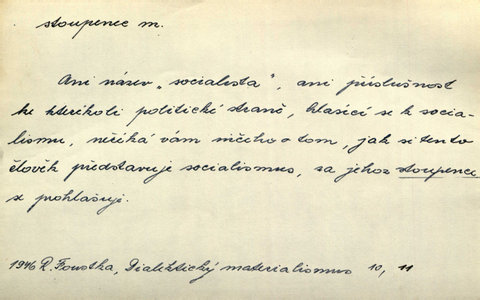 stoupenec m.
Ani název „socialista", ani příslušnost
ke kterékoli politické straně, hlásící se k socia-
lismu, neříká vám ničeho o tom, jak si tento
člověk představuje socialismus, za jehož stoupence
se prohlašuje.
1946 R. Foustka, Dialektický materialismus 10, 11